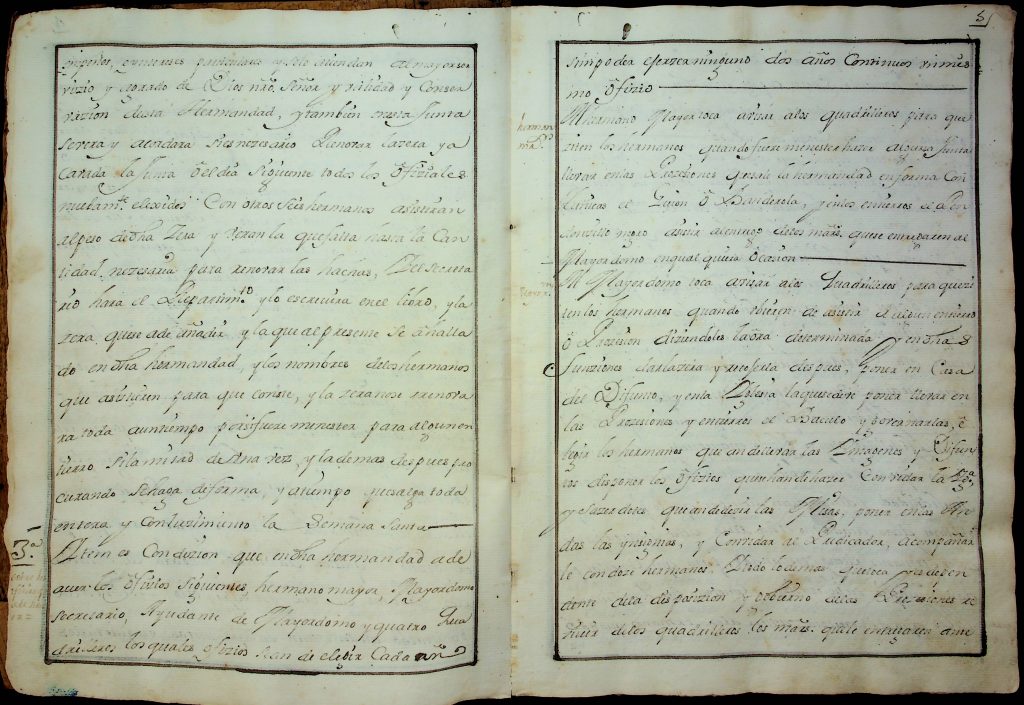 empeños, e yntereses particulares y solo atiendan al mayor ser
vizio y agrado de Dios nrō. Señor y utilidad y Conser
vazion desta Hermandad, y tambien en esta Junta
se vera y acordara si es nezesario Renovar la zera, y a
Cavada la Junta ō el dia siguiente todos los ōfiziales
nuebamte. elexidos Con otros seis hermanos asistiran
al peso de dha zera y veran la que falta hasta la Can
tidad nezesaria para renovar las hachas, el secreta
rio hara el Repartimto. y lo escrivira en el libro, y la
zera que se a de añadir, y la que al presente se a halla
do en dha hermandad, y los nombres de los hermanos
que asistieren para que conste, y la zera no se renova
ra toda a un tiempo por si fuere menester para algun en
tierro si la mitad de una vez, y la demas despues pro
curando se haga de forma, y a tiempo que salga toda
entera y Con luzimiento la Semana Santa
3a
Item es Condizion que en dha hermandad a de
auer los ōfizios siguientes, hermano mayor, Mayordomo
Secretario, Ayudante de Mayordomo y quatro Qua
drilleros los quales ofizios se an de elegir Cada añ
5
sin poder exerzer ninguno dos años Continuos un mis
mo ōfizio
Al hermano Mayor toca avisar a los quadrilleros para que
ziten los hermanos quando fuere menester hazer alguna Junta
llevar en las Prozesiones que sale la hermandad en forma Con
el Guion ō Banderola, y en los entierros el Pen
donzillo negro asistir al
Mayordomo en qual quiera ocasion
herman
Mr.
Al Mayordomo toca avisar a los Quadrilleros para que zi
ten los hermanos quando ubieren de asistir a algun entierro
ō Prozesion diziendoles la ōra determinada y en dhas
funziones dar la zera y recoxerla despues, Poner en Casa
del Difunto, y en la Yglesia la que se deve poner llevar en
las Prozesiones y entierros el Baculo y governarlas, e
legir los hermanos que an de llevar las Ymagenes y Difun
tos disponer los ōfizios que se han de hazer Convidar la
y Sazerdotes que an de dezir las Misas, poner en las An
das las ynsignias, y Convidar al Predicador, acompañar
le con doze hermanos, todo lo demas que toca y es depen
diente de la disposizion y govierno de las Prozesiones re
zivir de los quadrilleros los mārs. que le entregaren ante